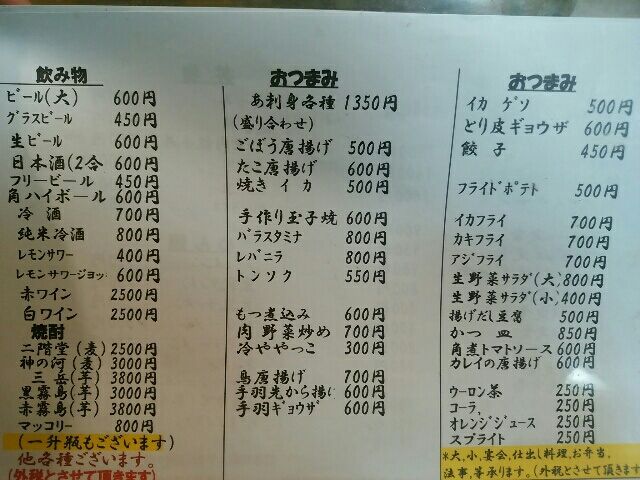 飲み物
ビール(大) 600円
グラスビール 450円
生ビール 600円
日本酒(2合 600円
フリービール 450円
角ハイボール 600円
冷酒 700円
純米冷酒 800円
レモンサワー 400円
レモンサワージョッ 600円
赤ワイン 2500円
白ワイン 2500円
焼酎
二階堂(麦) 2500円
神の河(麦) 3000円
三岳(芋) 3800円
黒霧島(芋) 3000円
赤霧島(芋) 3800円
マッコリー 800円
(一升瓶もございます)
他各種ございます。
(外税とさせて頂きます)
おつまみ
お刺身各種 1350円
(盛り合わせ)
ごぼう唐揚げ 500円
たこ唐揚げ 600円
焼きイカ 500円
手作り玉子焼 600円
バラスタミナ 800円
レバニラ 800円
トンソク 550円
もつ煮込み 600円
肉野菜炒め 700円
冷ややっこ 300円
鳥唐揚げ 700円
手羽先から揚げ 600円
手羽ギョウザ 600円
おつまみ
イカ ゲソ 500円
とり皮ギョウザ 600円
餃子 450円
フライドポテト 500円
イカフライ 700円
カキフライ 700円
アジフライ 700円
生野菜サラダ(大) 800円
生野菜サラダ(小) 400円
揚げだし豆腐 500円
かつ皿 850円
角煮トマトソース 600円
カレイの唐揚げ 600円
ウーロン茶 250円
コーラ, 250円
オレンジジュース 250円
スプライト 250円
*大,小,宴会,仕出し料理,お弁当,
法事,等承ります。(外税とさせて頂きます